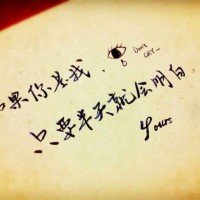 如果你是我，
Don't
cry~
只要半天就会明白.
yours